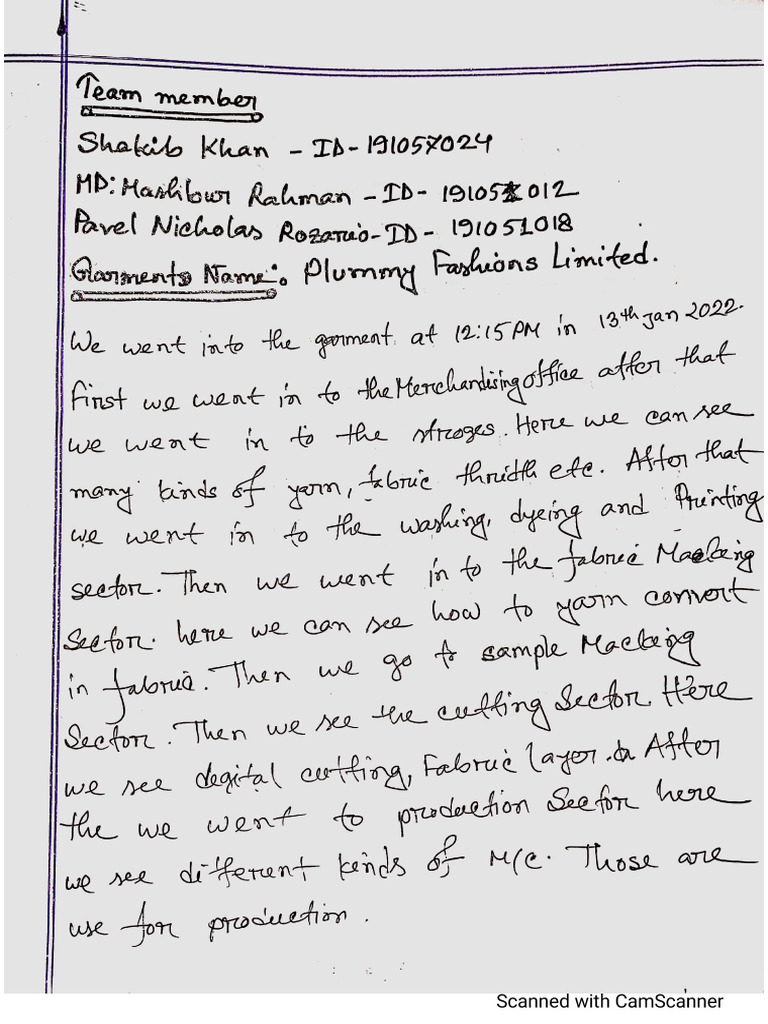 Team member
Shakib Khan - ID- 191057024
MD: Mashibour Rahman - ID- 191051012
Pavel Nicholas Rozario- ID- 191051018
Garments Name: Plummy Fashions Limited.
We went into the garment at 12:15 PM in 13th Jan 2022.
first we went in to the Merchandising office after that
we went in to the stroges. Here we can see
many kinds of yarn, fabric thridth etc. After that
we went in to the washing, dyeing and Printing
sector. Then we went in to the fabric Macking
Sector. here we can see how to yarn convert
in fabric. Then we go to sample Macking
Sector. Then we see the cutting Sector. Here
we see degital cutting, Fabric layer. After
the we went to production Sector here
we see different kinds of M/C. Those are
use for production.
Scanned with CamScanner